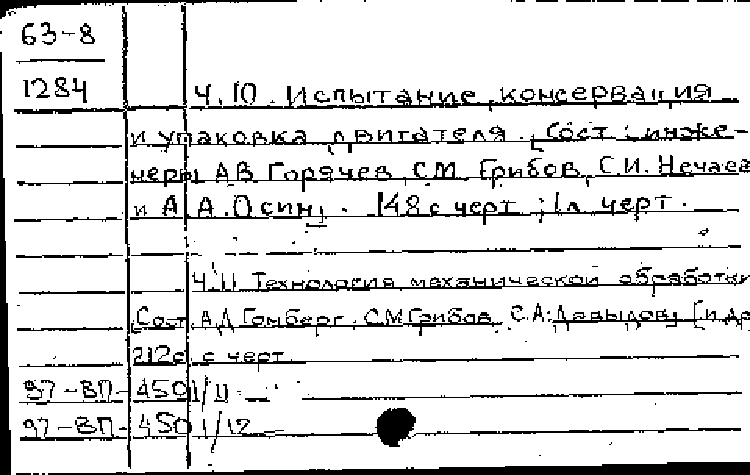 63-8
1284
Ч.10. Испытание, консервация
и упаковка двигателя. [Сост.: инже-
неры А.В. Горячев, С.М. Грибов, С.И. Нечаев
и А.А. Осин]. 148 с черт.; 1л. черт.
Ч.11 Технология механической обработки
[Сост. А.Д. Гомберг, С.М. Грибов, С.А. Давыдов [и др
212с. с черт.
97-ВП-4501/11
97-ВП-4501/12